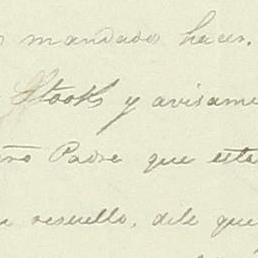 mandado hacer.
Stooks y avisame
Padre que esta
resuello, dile que